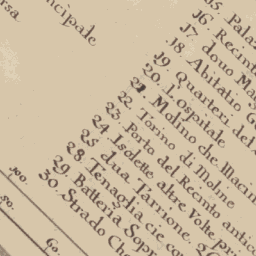 ncipale
rsa.
15 Palaz
16. Recint
17 dove Mag
18. Abitatio G
19. Quartieri del
20. L'ospitale
21. Molino che Macin
22 Torino di Moline
23. Porto del Recinto antic
24 Isolette altre volte pri
25 dua. Tarrione. 26
28. Tenaglia cie co
29. Batteria Sopr
30. Strado Che
100
50.
60